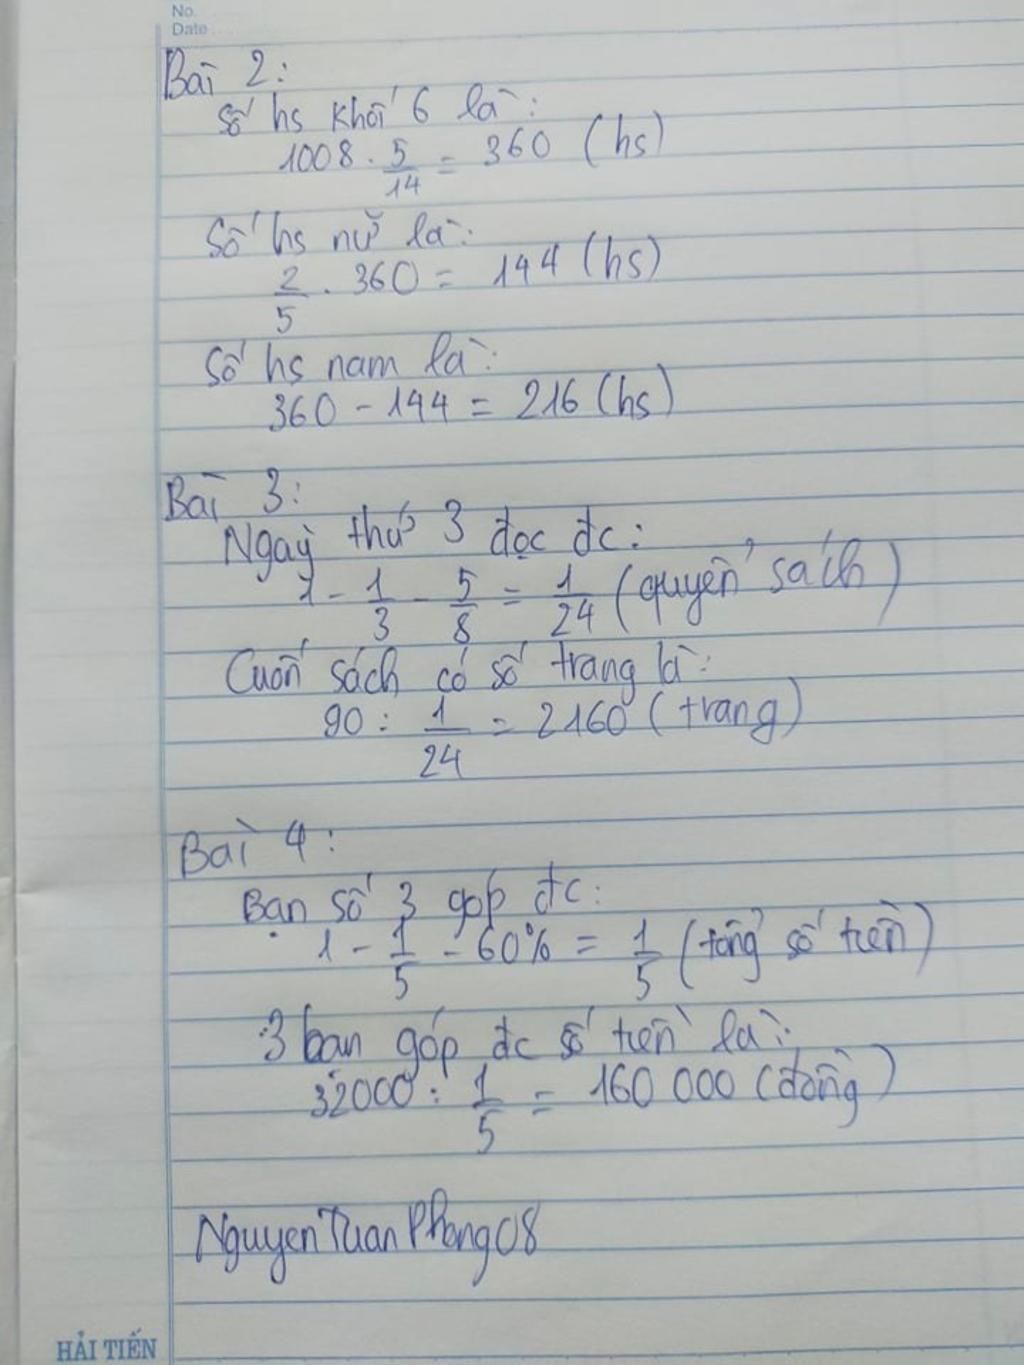 No.
Date
Bài 2:
Số hs khối 6 là:
1008 . 5/14 = 360 (hs)
Số hs nữ là:
2/5 . 360 = 144 (hs)
Số hs nam là:
360 - 144 = 216 (hs)
Bài 3:
Ngày thứ 3 đọc đc:
1 - 1/3 - 5/8 = 1/24 (quyển sách)
Cuốn sách có số trang là:
90 : 1/24 = 2160 (trang)
Bài 4:
Bạn số 3 góp đc:
1 - 1/5 - 60% = 1/5 (tổng số tiền)
3 bạn góp đc số tiền là:
32000 : 1/5 = 160 000 (đồng)
NguyenTuanPhong08
HẢI TIẾN